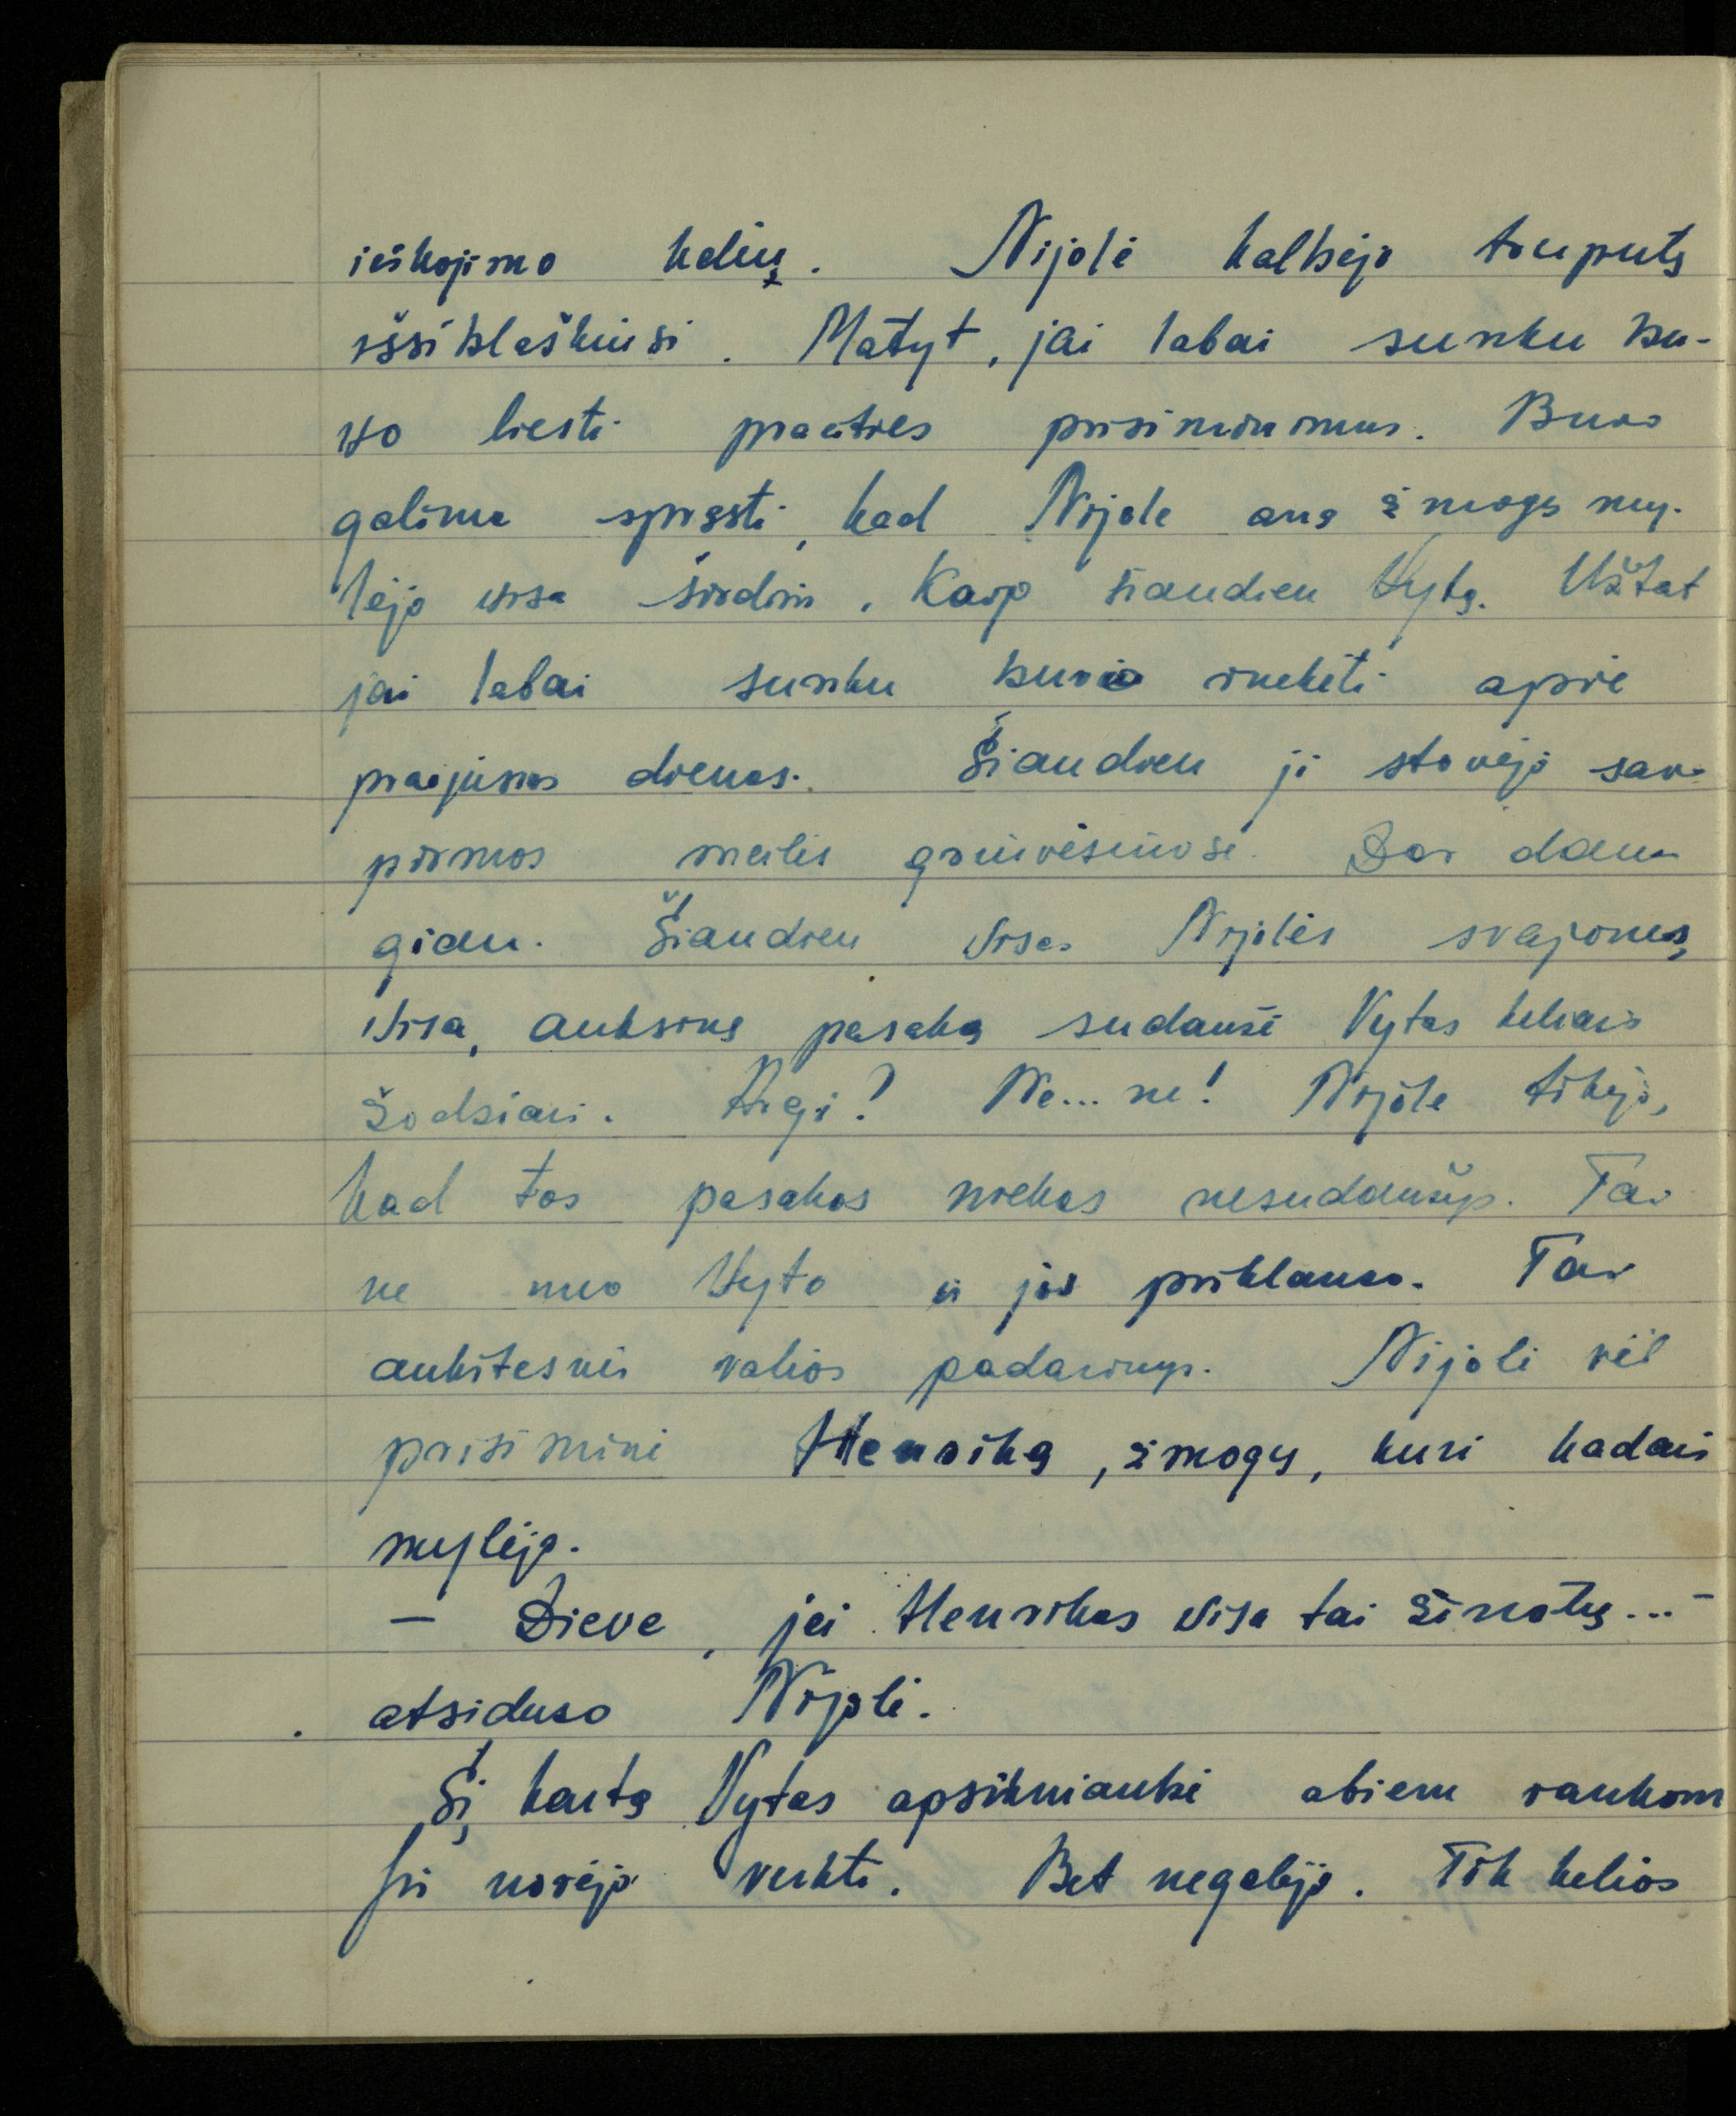 ieškojimo kelių. Nijolė kalbėjo truputį
išsiblaškiusi. Matyt, jai labai sunku bu-
vo liesti praeities prisiminimus. Buvo
galima spręsti, kad Nijolė aną žmogų my-
lėjo visa širdimi. Kaip šiandien Vytą. Užtat
jai labai sunku buvo rinkti apie
praėjusias dienas. Šiandien ji stovėjo savo
pirmos meilės griuvėsiuose. Dar dau-
giau. Šiandien visas Nijolės svajones,
visą, auksinę pasaką sudaužė Vytas keliais
žodžiais. Argi? Ne... ne! Nijolė tikėjo,
kad tos pasakos niekas nesudaužys. Tai
ne nuo Vyto ir jos priklauso. Tai
aukštesnės valios padarinys. Nijolė vėl
prisiminė Henriką, žmogų, kurį kadais
mylėjo.
- Dieve, jei Henrikas visa tai žinotų... -
atsiduso Nijolė.
Šį kartą Vytas apsikniaubė abiem rankom
Jis norėjo verkti. Bet negalėjo. Tik kelios